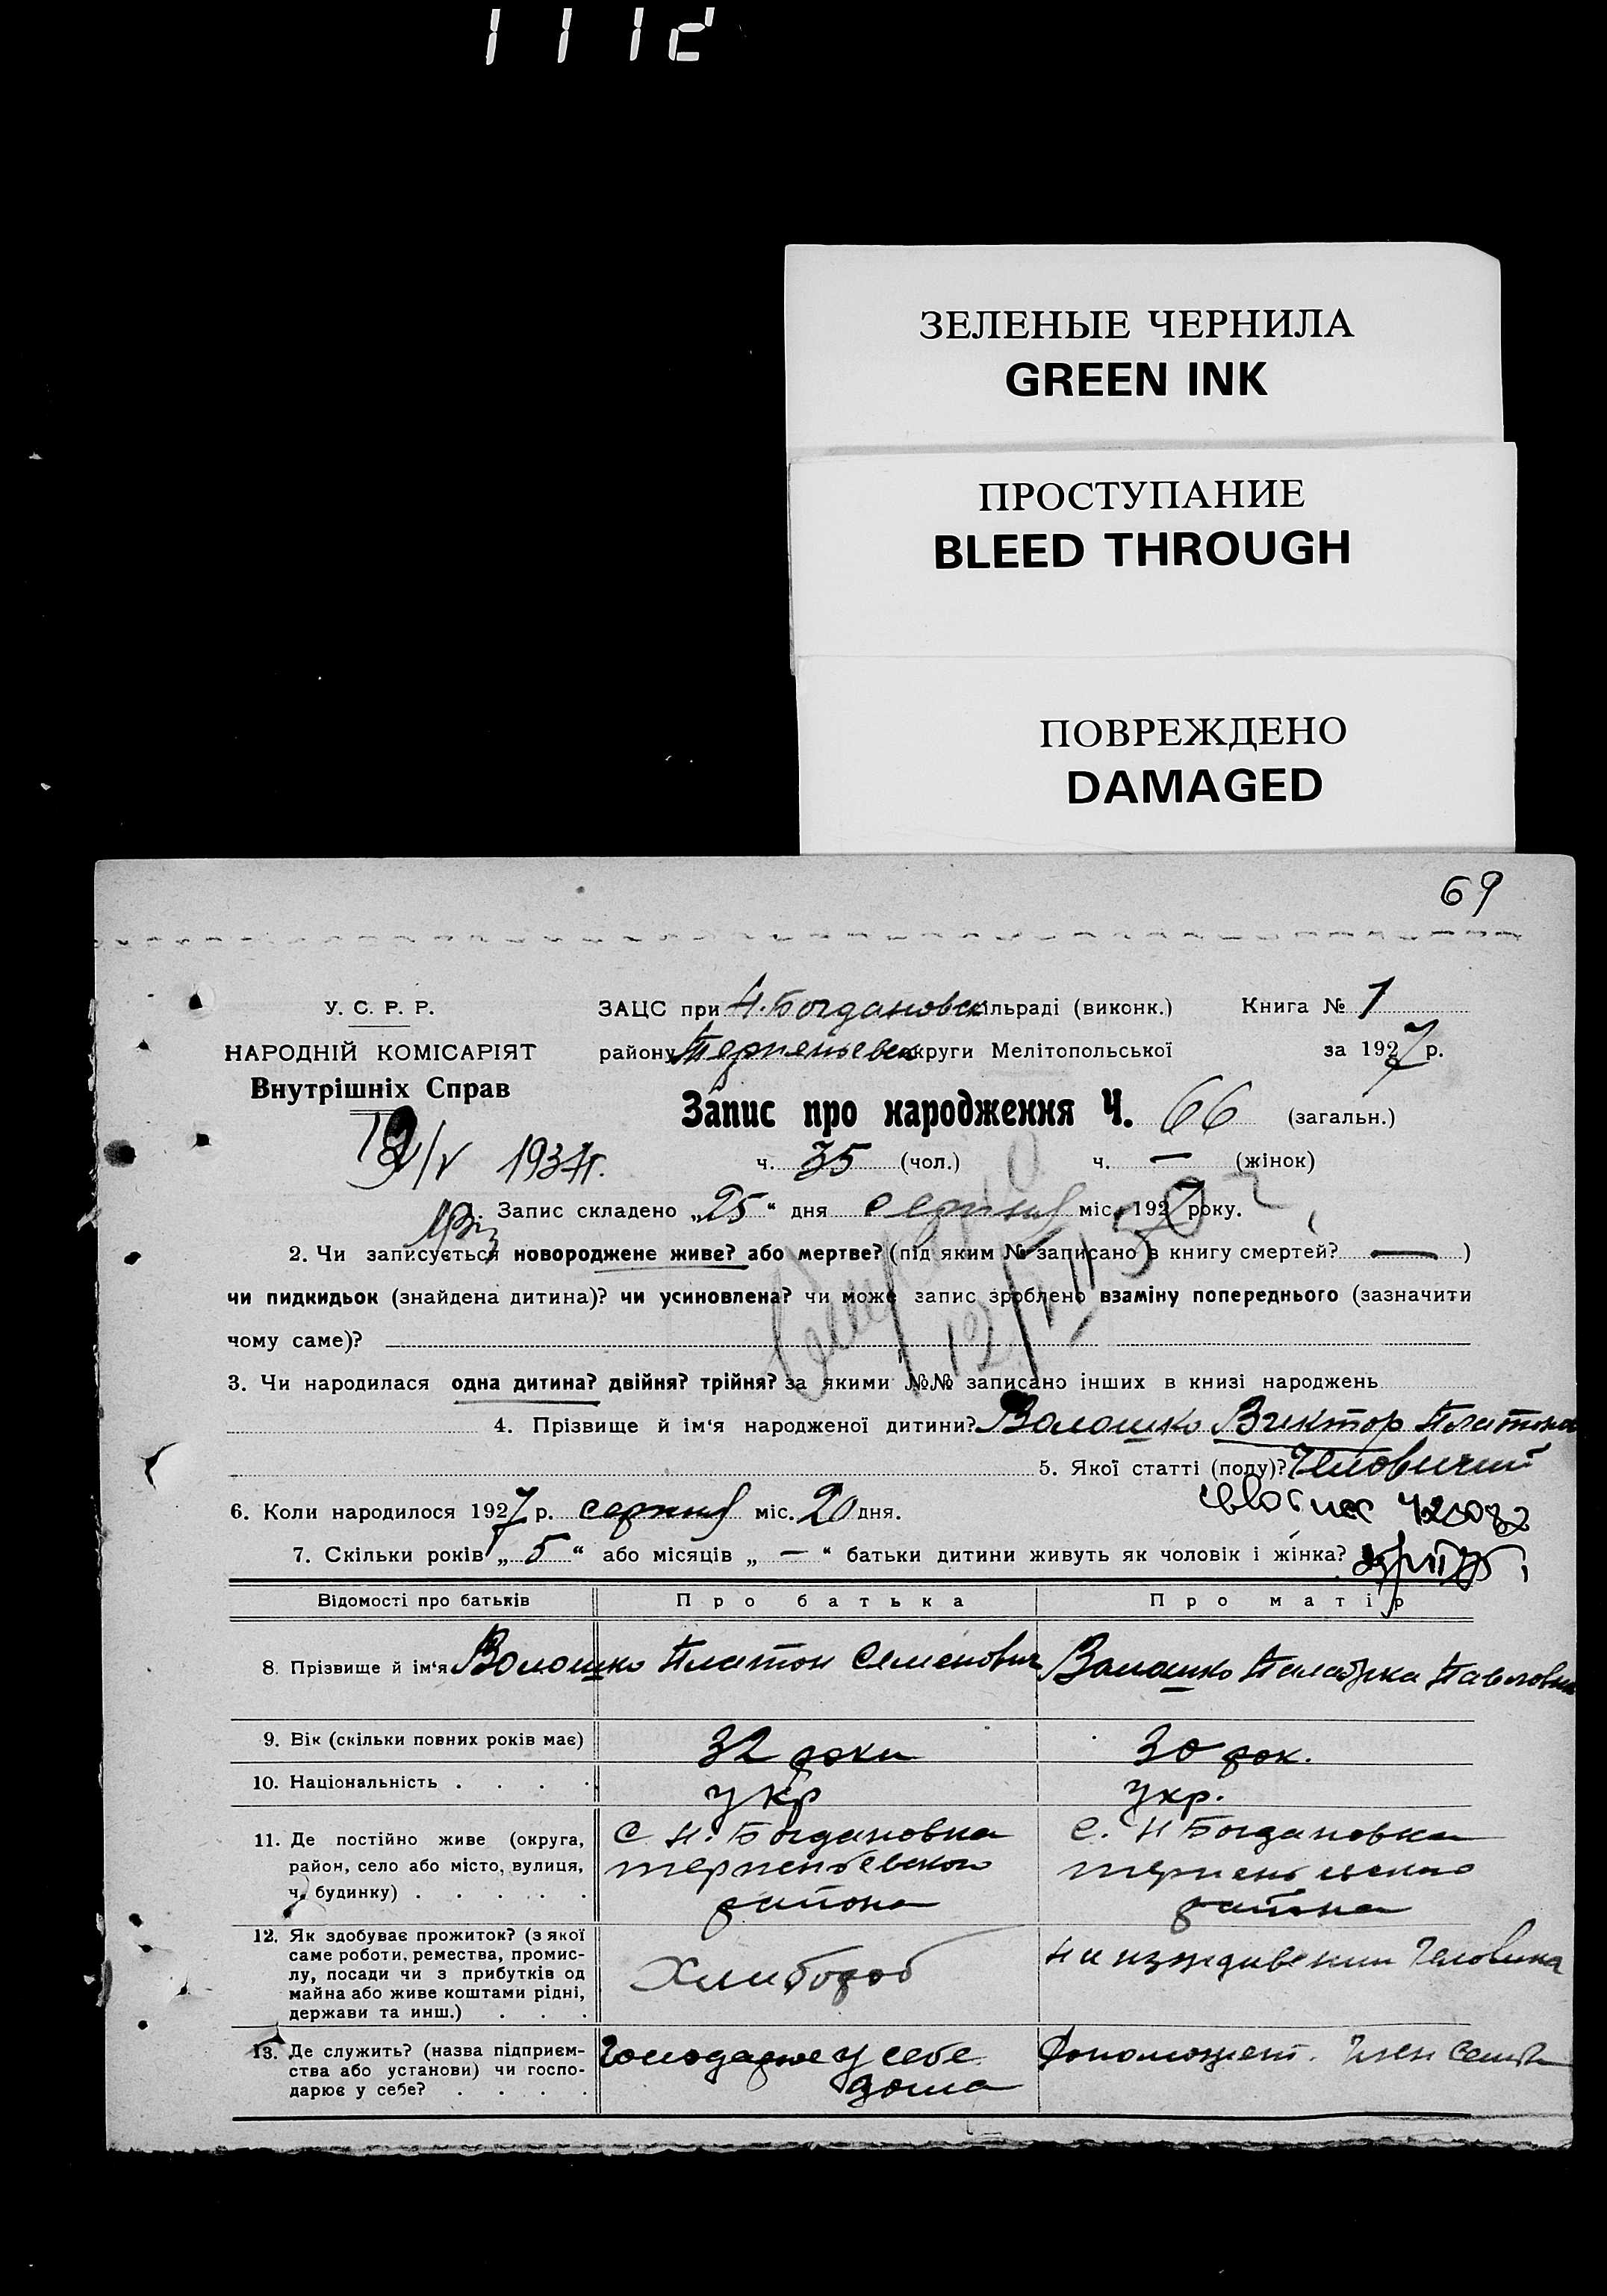 ЗЕЛЕНЫЕ ЧЕРНИЛА
GREEN INK
ПРОСТУПАНИЕ
BLEED THROUGH
ПОВРЕЖДЕНО
DAMAGED
69
У. С. Р. Р.
НАРОДНІЙ КОМІСАРІЯТ
Внутрішніх Справ
ЗАЦС при Н. Богдановск ільраді (виконк.)
Книга № 1
району Терпеньевск округи Мелітопольської
за 1927 р.
Запис про народження Ч. 66 (загальн.)
ч. 35 (чол.) ч. — (жінок)
Запис складено „25“ дня серпня міс. 1927 року.
2. Чи записується новороджене живе? або мертве? (під яким № записано в книгу смертей? — )
чи пидкидьок (знайдена дитина)? чи усиновлена? чи може запис зроблено взаміну попереднього (зазначити
чому саме)?
3. Чи народилася одна дитина? двійня? трійня? за якими №№ записано інших в книзі народжень
4. Прізвище й ім‘я народженої дитини? Волошко Виктор Платоно
5. Якої статті (полу)? Человичий
6. Коли народилося 1927 р. серпня міс. 20 дня.
7. Скільки років „ 5 “ або місяців „ — “ батьки дитини живуть як чоловік і жінка?
Відомості про батьків
Про батька
Про матір
8. Прізвище й ім‘я Волошко Платон Семенович
Волошко Палажка Павловна
9. Вік (скільки повних років має) 32 роки
30 рок.
10. Національність . . . . укр
укр.
11. Де постійно живе (округа,
район, село або місто, вулиця,
ч. будинку) . . . . .
С. Н. Богдановка
терпеньевского
района
С. Н Богдановка
терпеньевского
района
12. Як здобуває прожиток? (з якої
саме роботи, ремества, промис-
лу, посади чи з прибутків од
майна або живе коштами рідні,
держави та инш.) . . .
Хлибороб
На иждивении Человика
13. Де служить? (назва підприєм-
ства або установи) чи госпо-
дарює у себе? . . . .
Господарює у себе
дома
Допоможет. Член Семьи